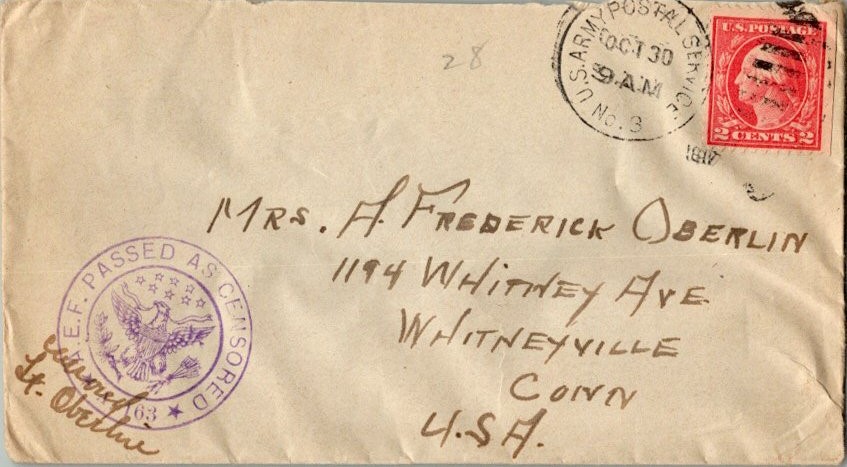 28
U.S. ARMY POSTAL SERVICE
OCT 30
9 A.M
No. 3
U.S. POSTAGE
2 CENTS 2
MRS. A. FREDERICK OBERLIN
1194 WHITNEY AVE
WHITNEYVILLE
CONN
U.S.A.
A.E.F. PASSED AS CENSORED
163 ★
Lt. Oberlin